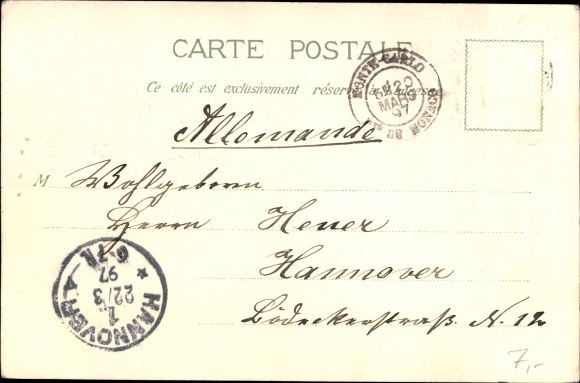 CARTE POSTALE
Ce côté est exclusivement réservé à l'adresse
MONTE-CARLO
MARS
97
PTÉ DE MONACO
Allemande
M Wohlgeborn
Herrn Heuer
Hannover
Bödeckerstraß. N. 12
HANNOVER
1.
22/3
97
6-7N.
7,-